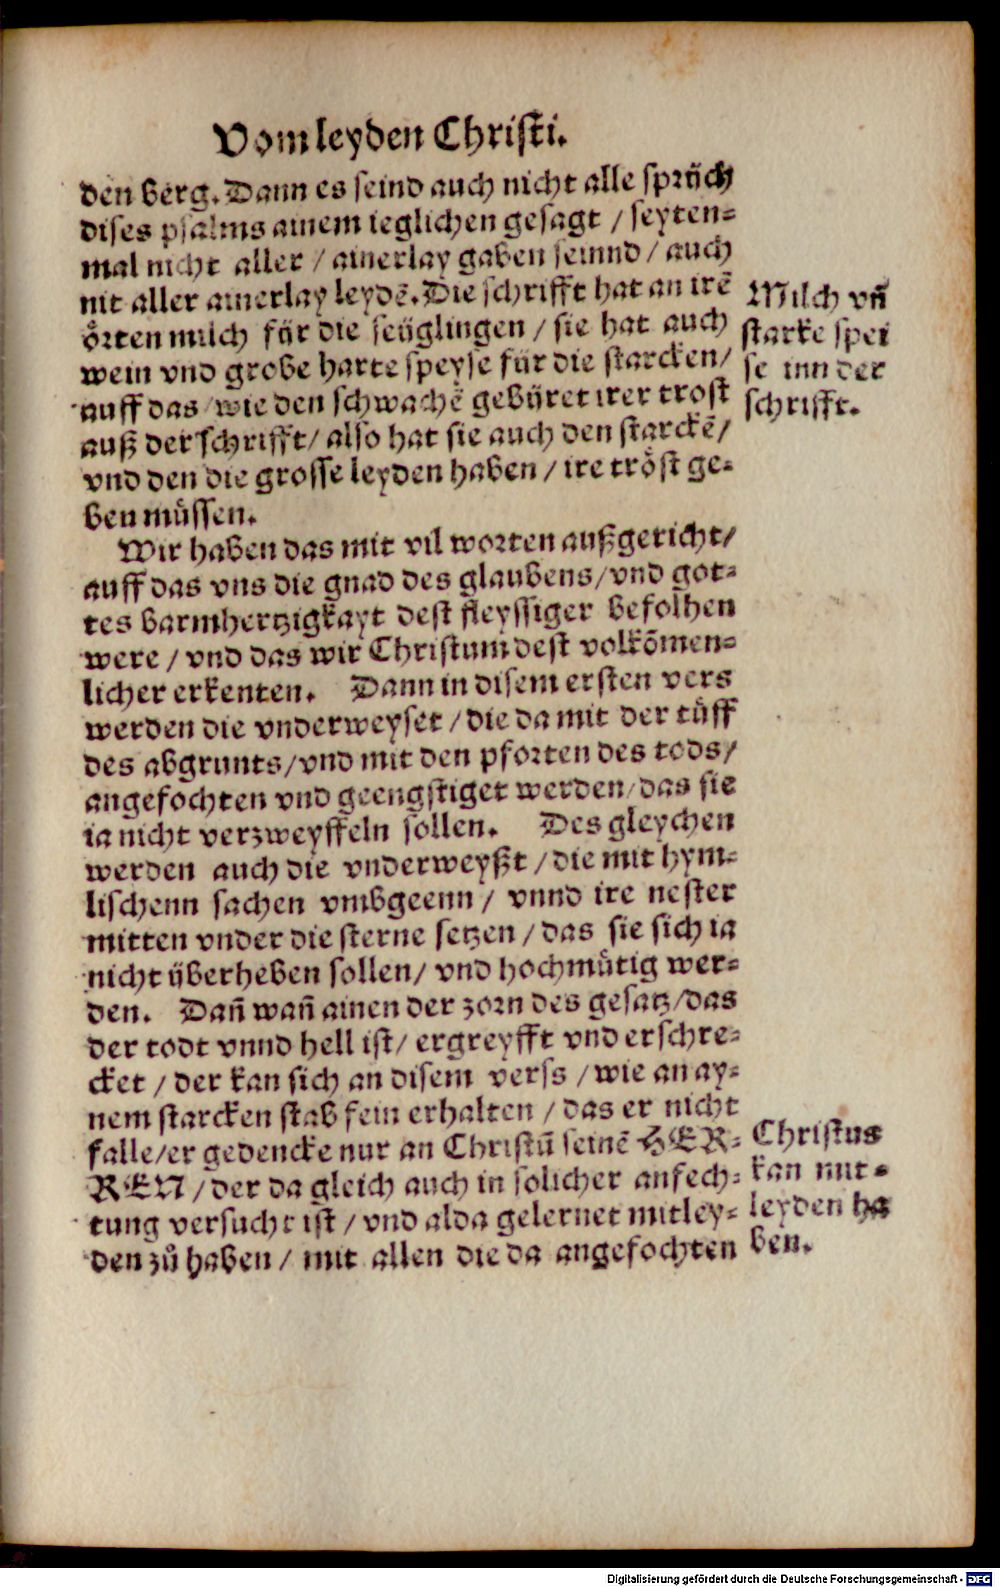 Vom leyden Christi.
den berg. Dann es seind auch nicht alle sprüch
dises psalms ainem ieglichen gesagt / seyten-
mal nicht aller / ainerlay gaben seinnd / auch
nit aller ainerlay leydē. Die schrifft hat an irē
örten milch für die seüglingen / sie hat auch
wein vnd grobe harte speyse für die starcken /
auff das / wie den schwachē gebüret irer trost
auß der schrifft / also hat sie auch den starckē /
vnd den die grosse leyden haben / ire tröst ge-
ben müssen.
Milch vñ
starke spei
se inn der
schrifft.
Wir haben das mit vil worten außgericht /
auff das vns die gnad des glaubens / vnd got-
tes barmhertzigkayt dest fleyssiger befolhen
were / vnd das wir Christum dest volkōmen-
licher erkenten. Dann in disem ersten vers
werden die vnderweyset / die da mit der tüff
des abgrunts / vnd mit den pforten des tods /
angefochten vnd geengstiget werden / das sie
ia nicht verzweyffeln sollen. Des gleychen
werden auch die vnderweyßt / die mit hym-
lischenn sachen vmbgeenn / vnnd ire nester
mitten vnder die sterne setzen / das sie sich ia
nicht überheben sollen / vnd hochmütig wer-
den. Dañ wañ ainen der zorn des gesatz / das
der todt vnnd hell ist / ergreyfft vnd erschre-
cket / der kan sich an disem verss / wie an ay-
nem starcken stab fein erhalten / das er nicht
falle / er gedencke nur an Christū seinē HER-
REN / der da gleich auch in solicher anfech-
tung versucht ist / vnd alda gelernet mitley-
den zů haben / mit allen die da angefochten
Christus
kan mit-
leyden ha
ben.
Digitalisierung gefördert durch die Deutsche Forschungsgemeinschaft - DFG